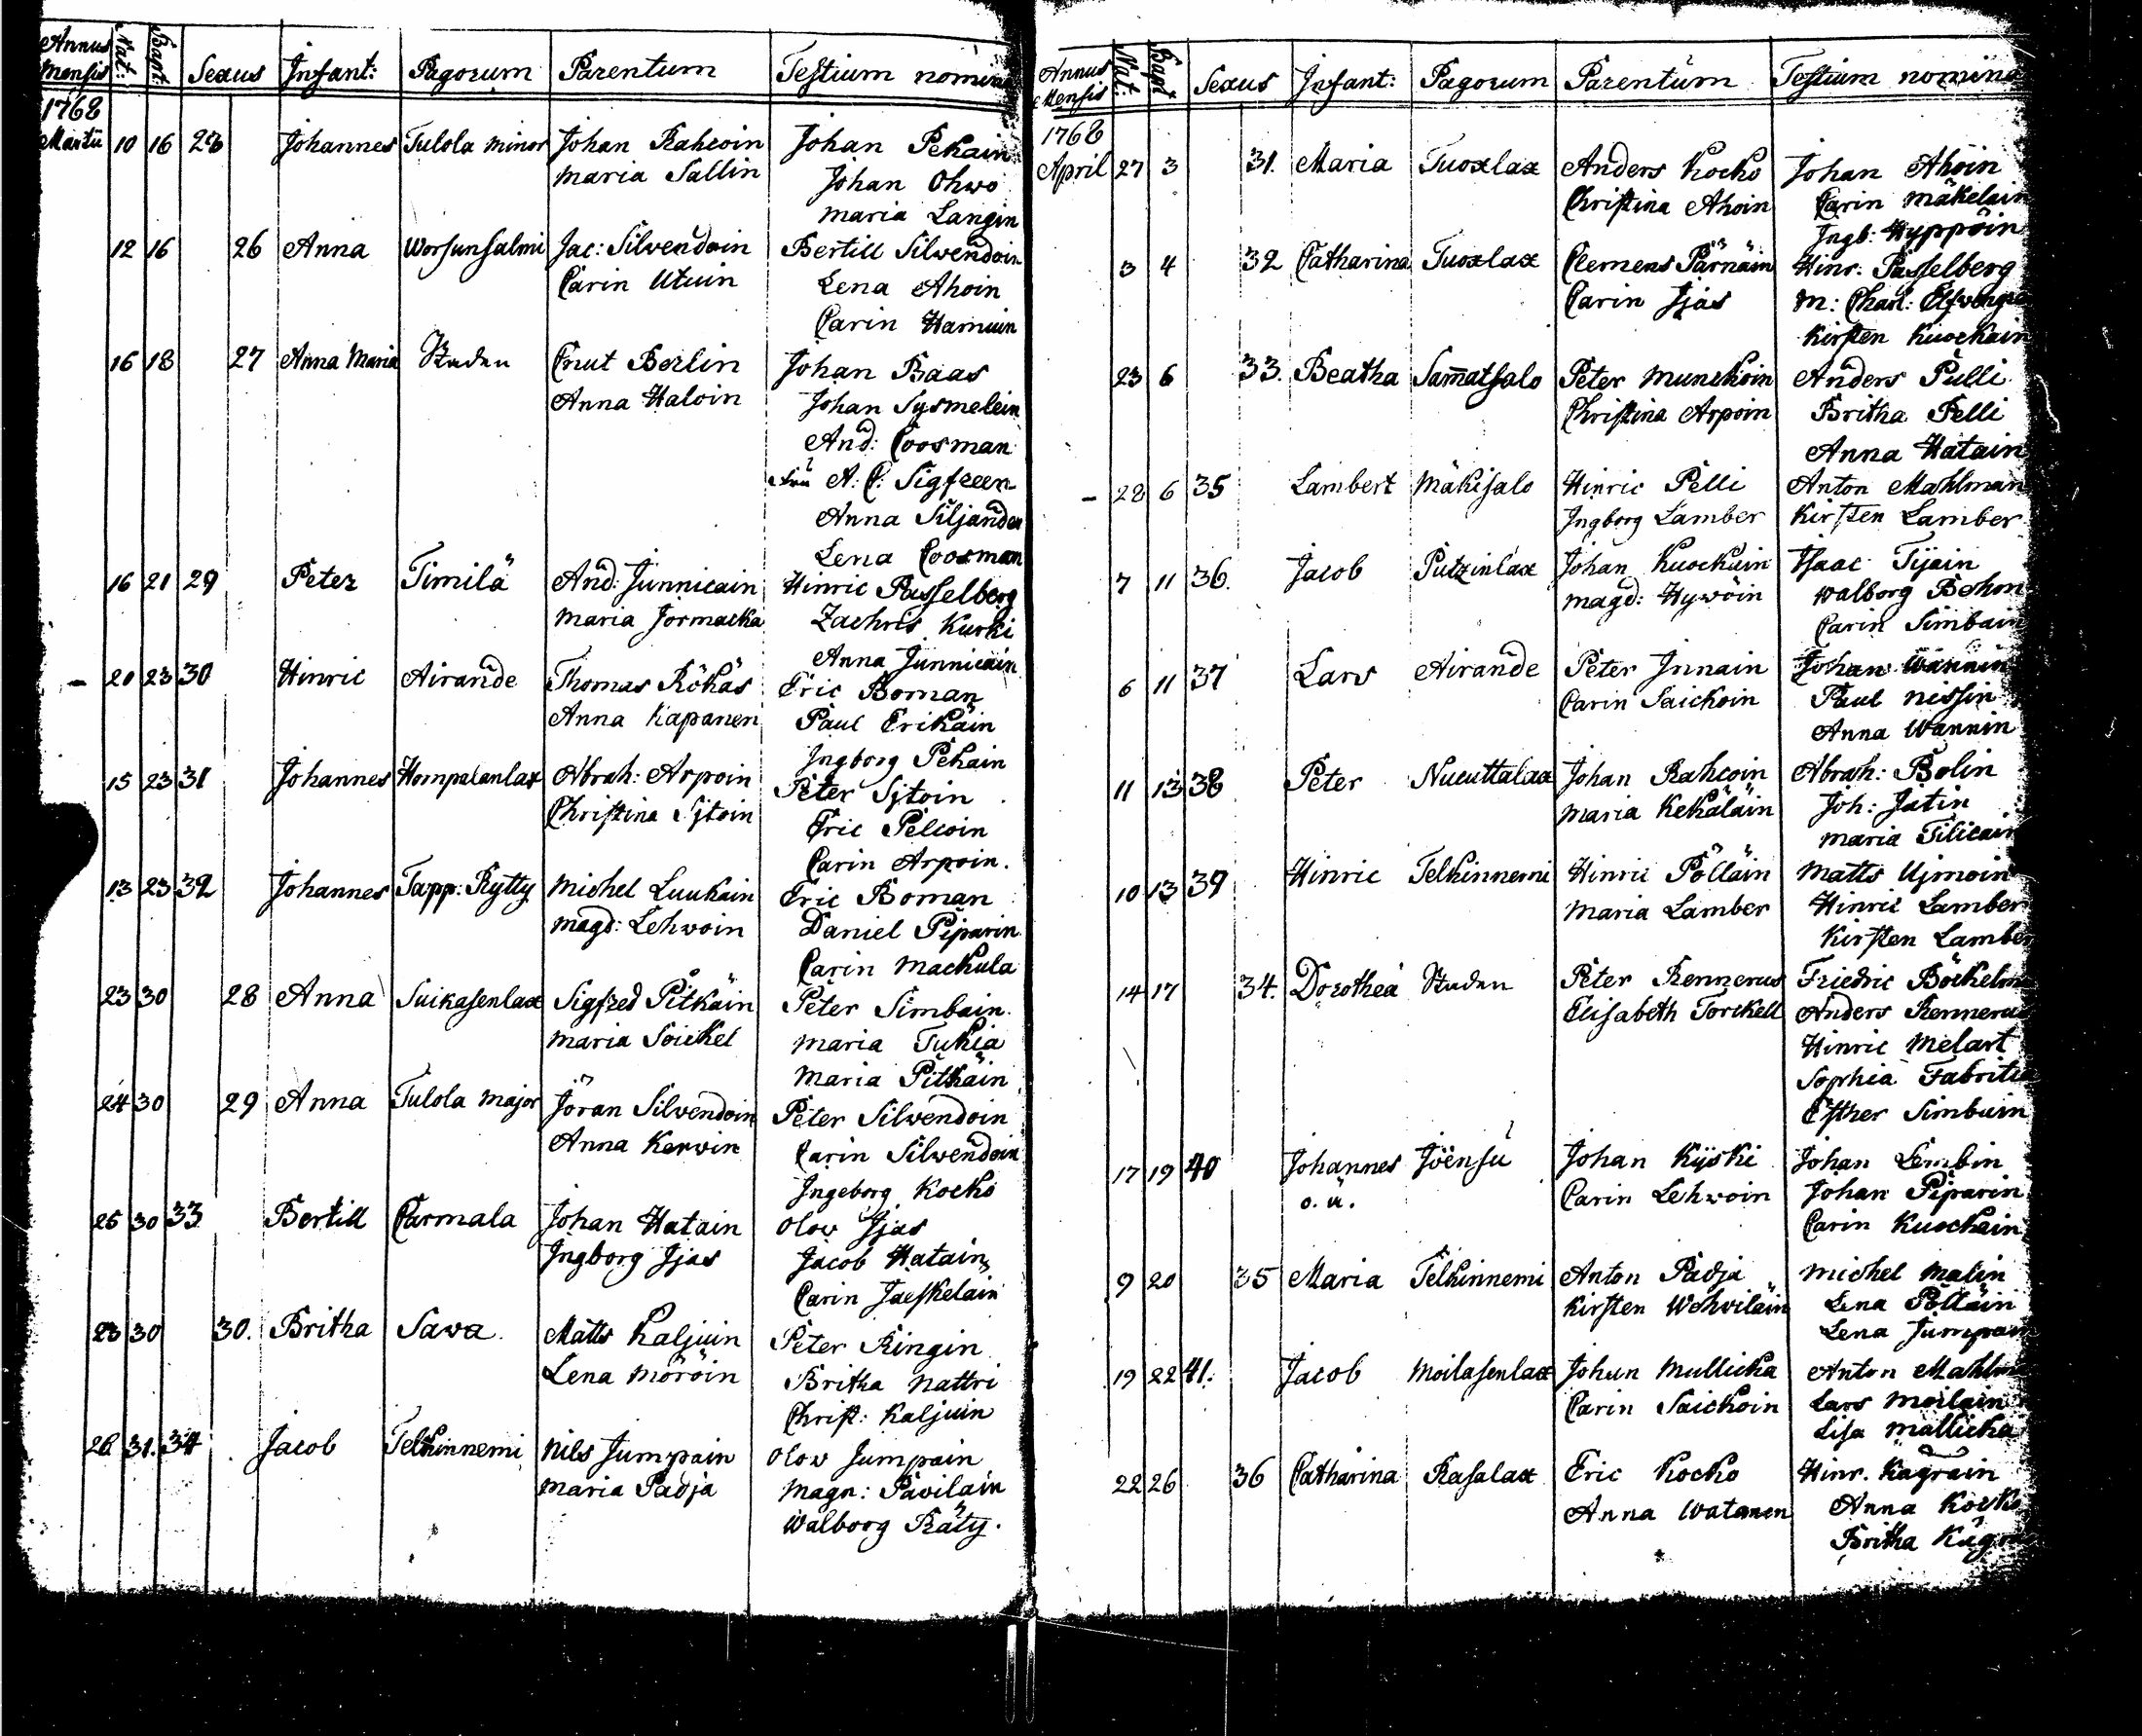 Annus Mensis Nat: Bapt: Sexus Infant: Pagorum Parentum Testium nomina
1768
Martii 10 16 28 Johannes Tulola minor Johan Rahcoin Johan Pekain
Maria Sallin Johan Ohwo
Maria Langin
12 16 26 Anna Worsunsalmi Jac: Silvendoin Bertill Silvendoin
Carin Utuin Lena Ahoin
Carin Hamuin
16 18 27 Anna Maria Staden Cnut Berlin Johan Baas
Anna Haloin Johan Sysmelein
And: Coosman
A: C: Sigfreen
Anna Siljander
Lena Coosman
16 21 29 Peter Timilä And: Junnicain Hinric Passelberg
Maria Jormacka Zachris Kurki
Anna Junnicain
20 23 30 Hinric Airande Thomas Rökäs Eric Boman
Anna Kapanen Paul Erikäin
Ingborg Pekain
15 23 31 Johannes Hompalanlax Abrah: Arpoin Peter Sjtoin
Christina Sjtoin Eric Pelcoin
Carin Arpoin.
13 23 32 Johannes Tapp: Rytty Michel Luukain Eric Boman
Magd: Lehwoin Daniel Piparin
Carin Mackula
23 30 28 Anna Suikasenlax Sigfred Pitkäin Peter Simbain.
Maria Soickel Maria Tukia
Maria Pitkäin
24 30 29 Anna Tulola major Jöran Silvendoin Peter Silvendoin
Anna Kerwin Carin Silvendoin
Ingeborg Kocko
25 30 33 Bertill Carmala Johan Hatain Olov Jjas
Ingborg Jjas Jacob Hatain
Carin Jaeskelain
23 30 30. Britha Sava Matts Kaljuin Peter Ringin
Lena Möröin Britha Nattri
Christ: Kaljuin
26 31. 34 Jacob Telkinnemi Nils Jumpain Olov Jumpain
Maria Padja Magn: Pavilain
Walborg Räty.
Annus Mensis Nat: Bapt Sexus Infant: Pagorum Parentum Testium nomina
1768
April 27 3 31. Maria Tuoxlax Anders Kocko Johan Ahoin
Christina Ahoin Carin Mäkelain
Ingb: Hyppöin
3 4 32 Catharina Tuoxlax Clemens Pärnäin Hinr: Passelberg
Carin Jjäs M: Charl:
Kirsten Kuockain
23 6 33. Beatha Sam̄atsalo Peter Munckoin Anders Pulli
Christina Arpoin Britha Pelli
Anna Hatain
28 6 35 Lambert Mäkisalo Hinric Pelli Anton Mahlman
Ingborg Lamber Kirsten Lamber
7 11 36. Jacob Putzinlax Johan Kuockain Isaac Tijain
Magd: Hywöin Walborg Behm
Carin Simbain
6 11 37 Lars Airande Peter Innain Johan Wannin
Carin Saickoin Paul Nissin
Anna Wannin
11 13 38 Peter Nucuttalax Johan Rahcoin Abrah: Bolin
Maria Kekäläin Joh: Jatin
Maria Tilicain
10 13 39 Hinric Telkinnemi Hinric Pölläin Matts Ujmoin
Maria Lamber Hinric Lamber
Kirsten Lamber
14 17 34. Dorothea Staden Peter Rennerus Friedric Böckelm
Elisabeth Torckell Anders Rennerus
Hinric Melart
Sophia Fabriti
Esther Simbuin
17 19 40 Johannes Jöensu Johan Kyski Johan Lembin
o. ä. Carin Lehwoin Johan Piparin
Carin Kuockain
9 20 35 Maria Telkinnemi Anton Padja Michel Malin
Kirsten Wehviläin Lena Polläin
Lena Jumpain
19 22 41. Jacob Moilasenlax Johan Mullicka Anton Mahlm
Carin Saickoin Lars Moilain
Lisa Mallicka
22 26 36 Catharina Rasalax Eric Kocko Hinr. Kägräin
Anna Watanen Anna Kocko
Britha Kägr